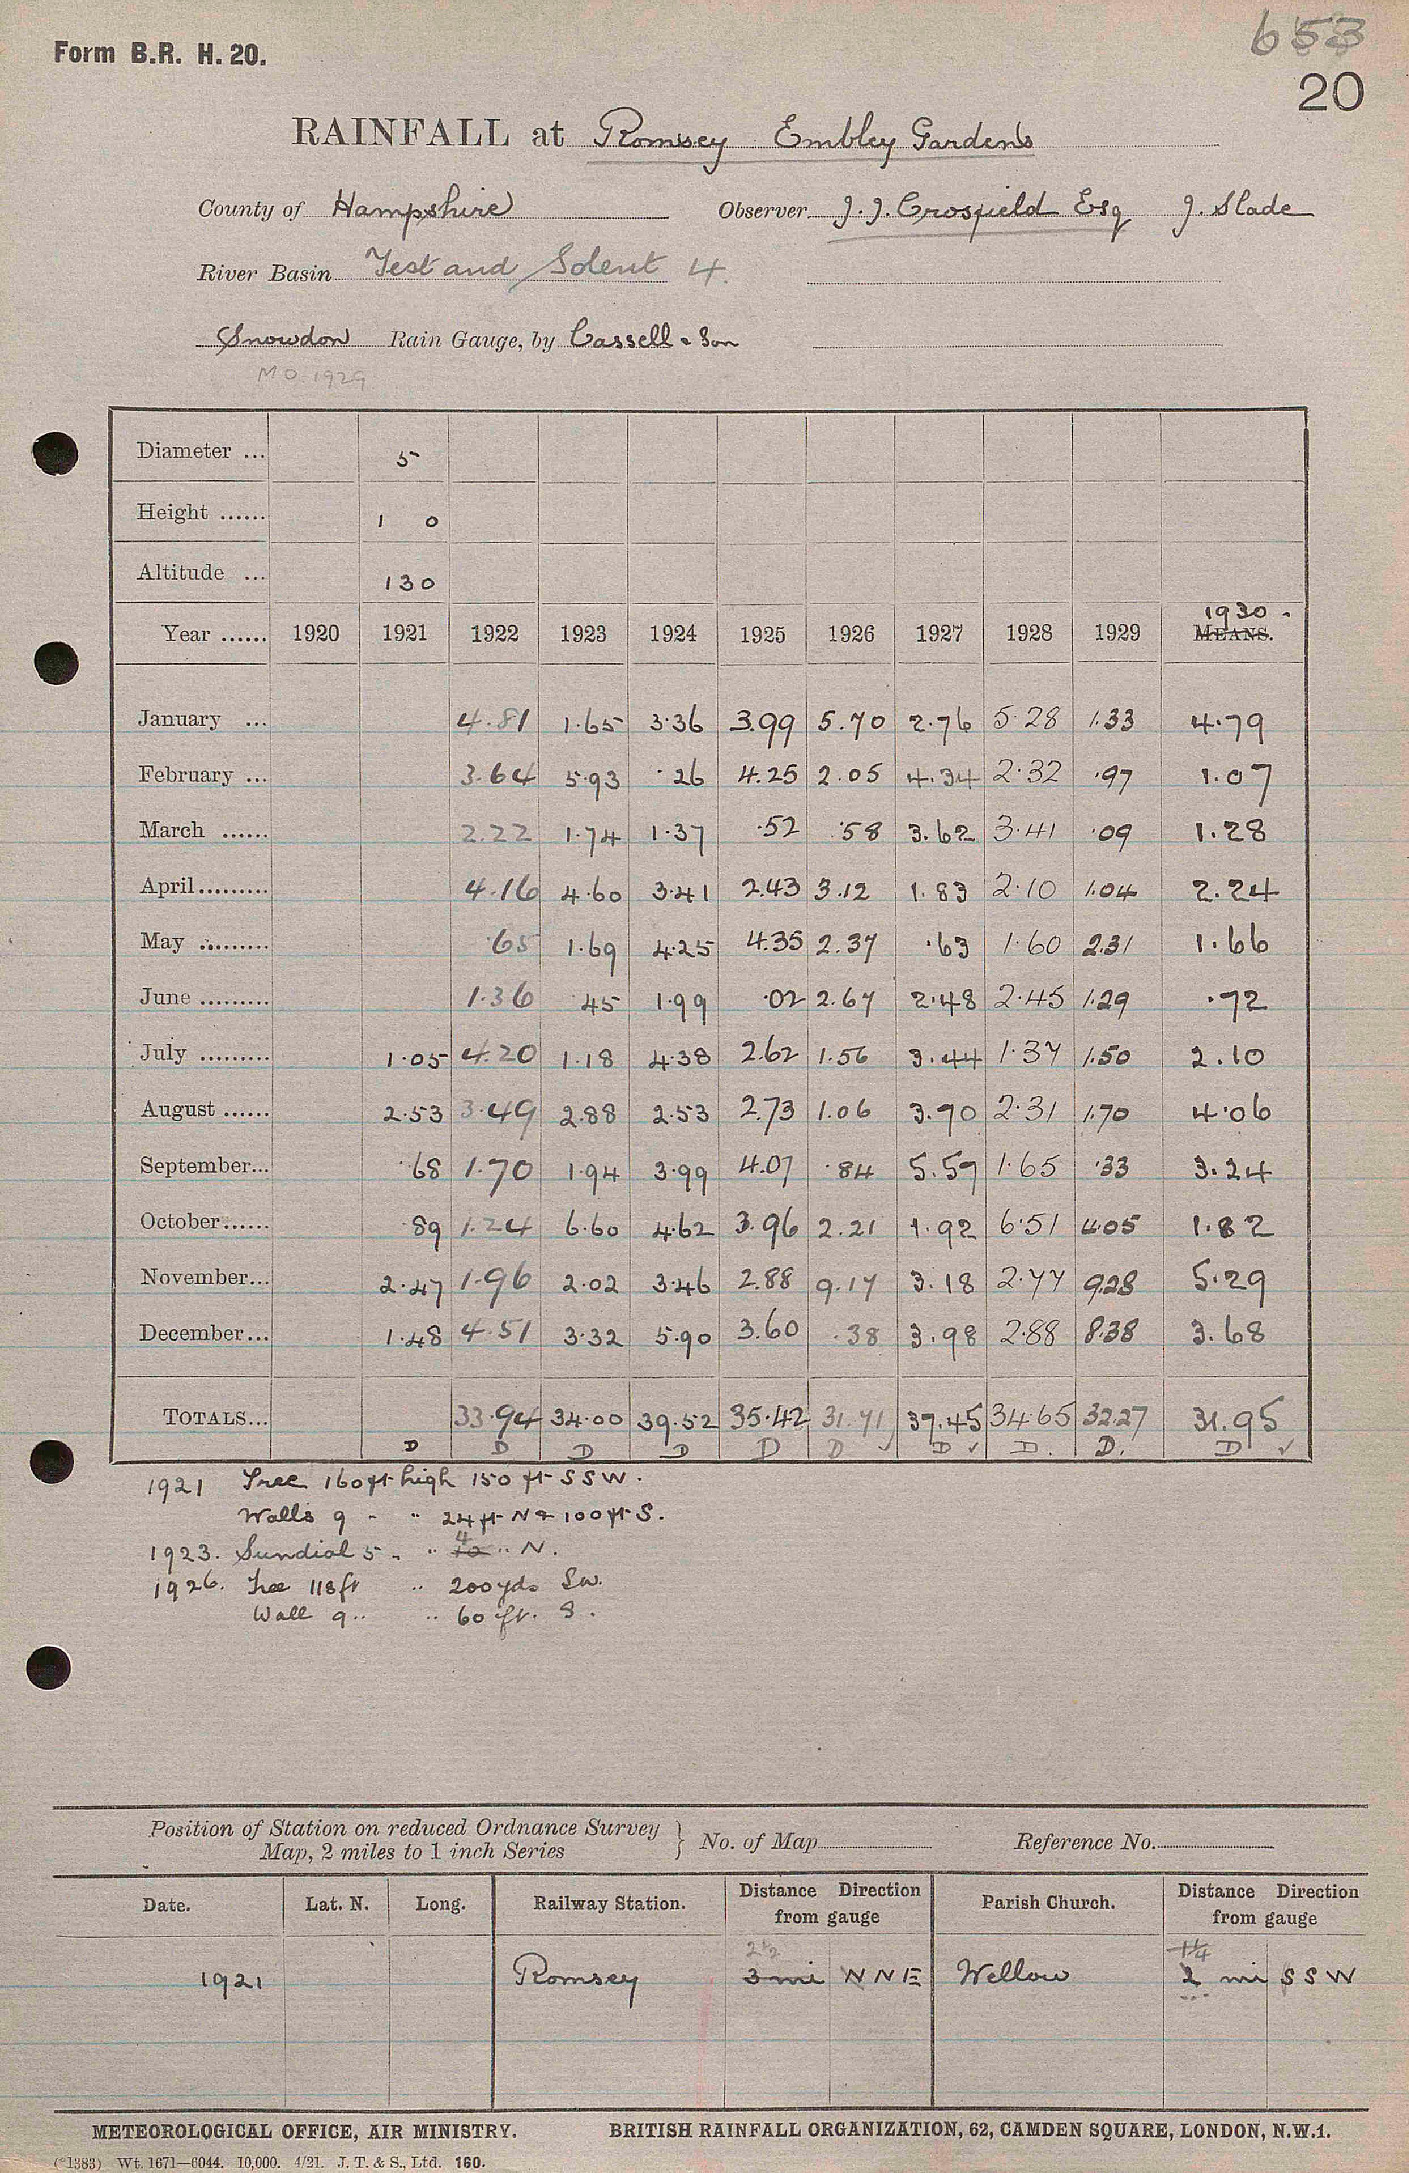 653
Form B.R. H. 20.
20
RAINFALL at Romsey Embley Gardens
County of Hampshire Observer J. J. Crosfield Esq J. Slade
River Basin Test and Solent 4.
Snowdon Rain Gauge, by Cassell & Son
MO 1929
Diameter ... 5
Height ...... 1 0
Altitude ... 130
1930 -
Year ...... 1920 1921 1922 1923 1924 1925 1926 1927 1928 1929 MEANS.
January ... 4.81 1.65 3.36 3.99 5.70 2.76 5.28 1.33 4.79
February ... 3.64 5.93 .26 4.25 2.05 4.34 2.32 .97 1.07
March ...... 2.22 1.74 1.37 .52 .58 3.62 3.41 .09 1.28
April ......... 4.16 4.60 3.41 2.43 3.12 1.83 2.10 1.04 2.24
May ......... .65 1.69 4.25 4.35 2.37 .63 1.60 2.31 1.66
June ......... 1.36 .45 1.99 .02 2.67 2.48 2.45 1.29 .72
July ......... 1.05 4.20 1.18 4.38 2.62 1.56 3.44 1.37 1.50 2.10
August ...... 2.53 3.49 2.88 2.53 2.73 1.06 3.70 2.31 1.70 4.06
September... .68 1.70 1.94 3.99 4.07 .84 5.57 1.65 .33 3.24
October...... .89 1.24 6.60 4.62 3.96 2.21 1.92 6.51 4.05 1.82
November... 2.47 1.96 2.02 3.46 2.88 9.17 3.18 2.77 9.28 5.29
December... 1.48 4.51 3.32 5.90 3.60 .38 3.98 2.88 8.38 3.68
TOTALS... 33.94 34.00 39.52 35.42 31.71 37.45 34.65 32.27 31.95
D D D D D D ✓ D ✓ D. D. D ✓
1921 Tree 160 ft high 150 ft SSW.
Walls 9 " " 24 ft N & 100 ft S.
1923. Sundial 5 " " 4 10 " N.
1926. Tree 118 ft " 200 yds SW.
Wall 9 " " 60 ft. S.
Position of Station on reduced Ordnance Survey
Map, 2 miles to 1 inch Series } No. of Map Reference No.
Date. Lat. N. Long. Railway Station. Distance Direction from gauge Parish Church. Distance Direction from gauge
2½ 1¼
1921 Romsey 3 mi NNE Wellow 2 mi SSW
METEOROLOGICAL OFFICE, AIR MINISTRY. BRITISH RAINFALL ORGANIZATION, 62, CAMDEN SQUARE, LONDON, N.W.1.
(*1383) Wt. 1671—6044. 10,000. 4/21. J. T. & S., Ltd. 160.